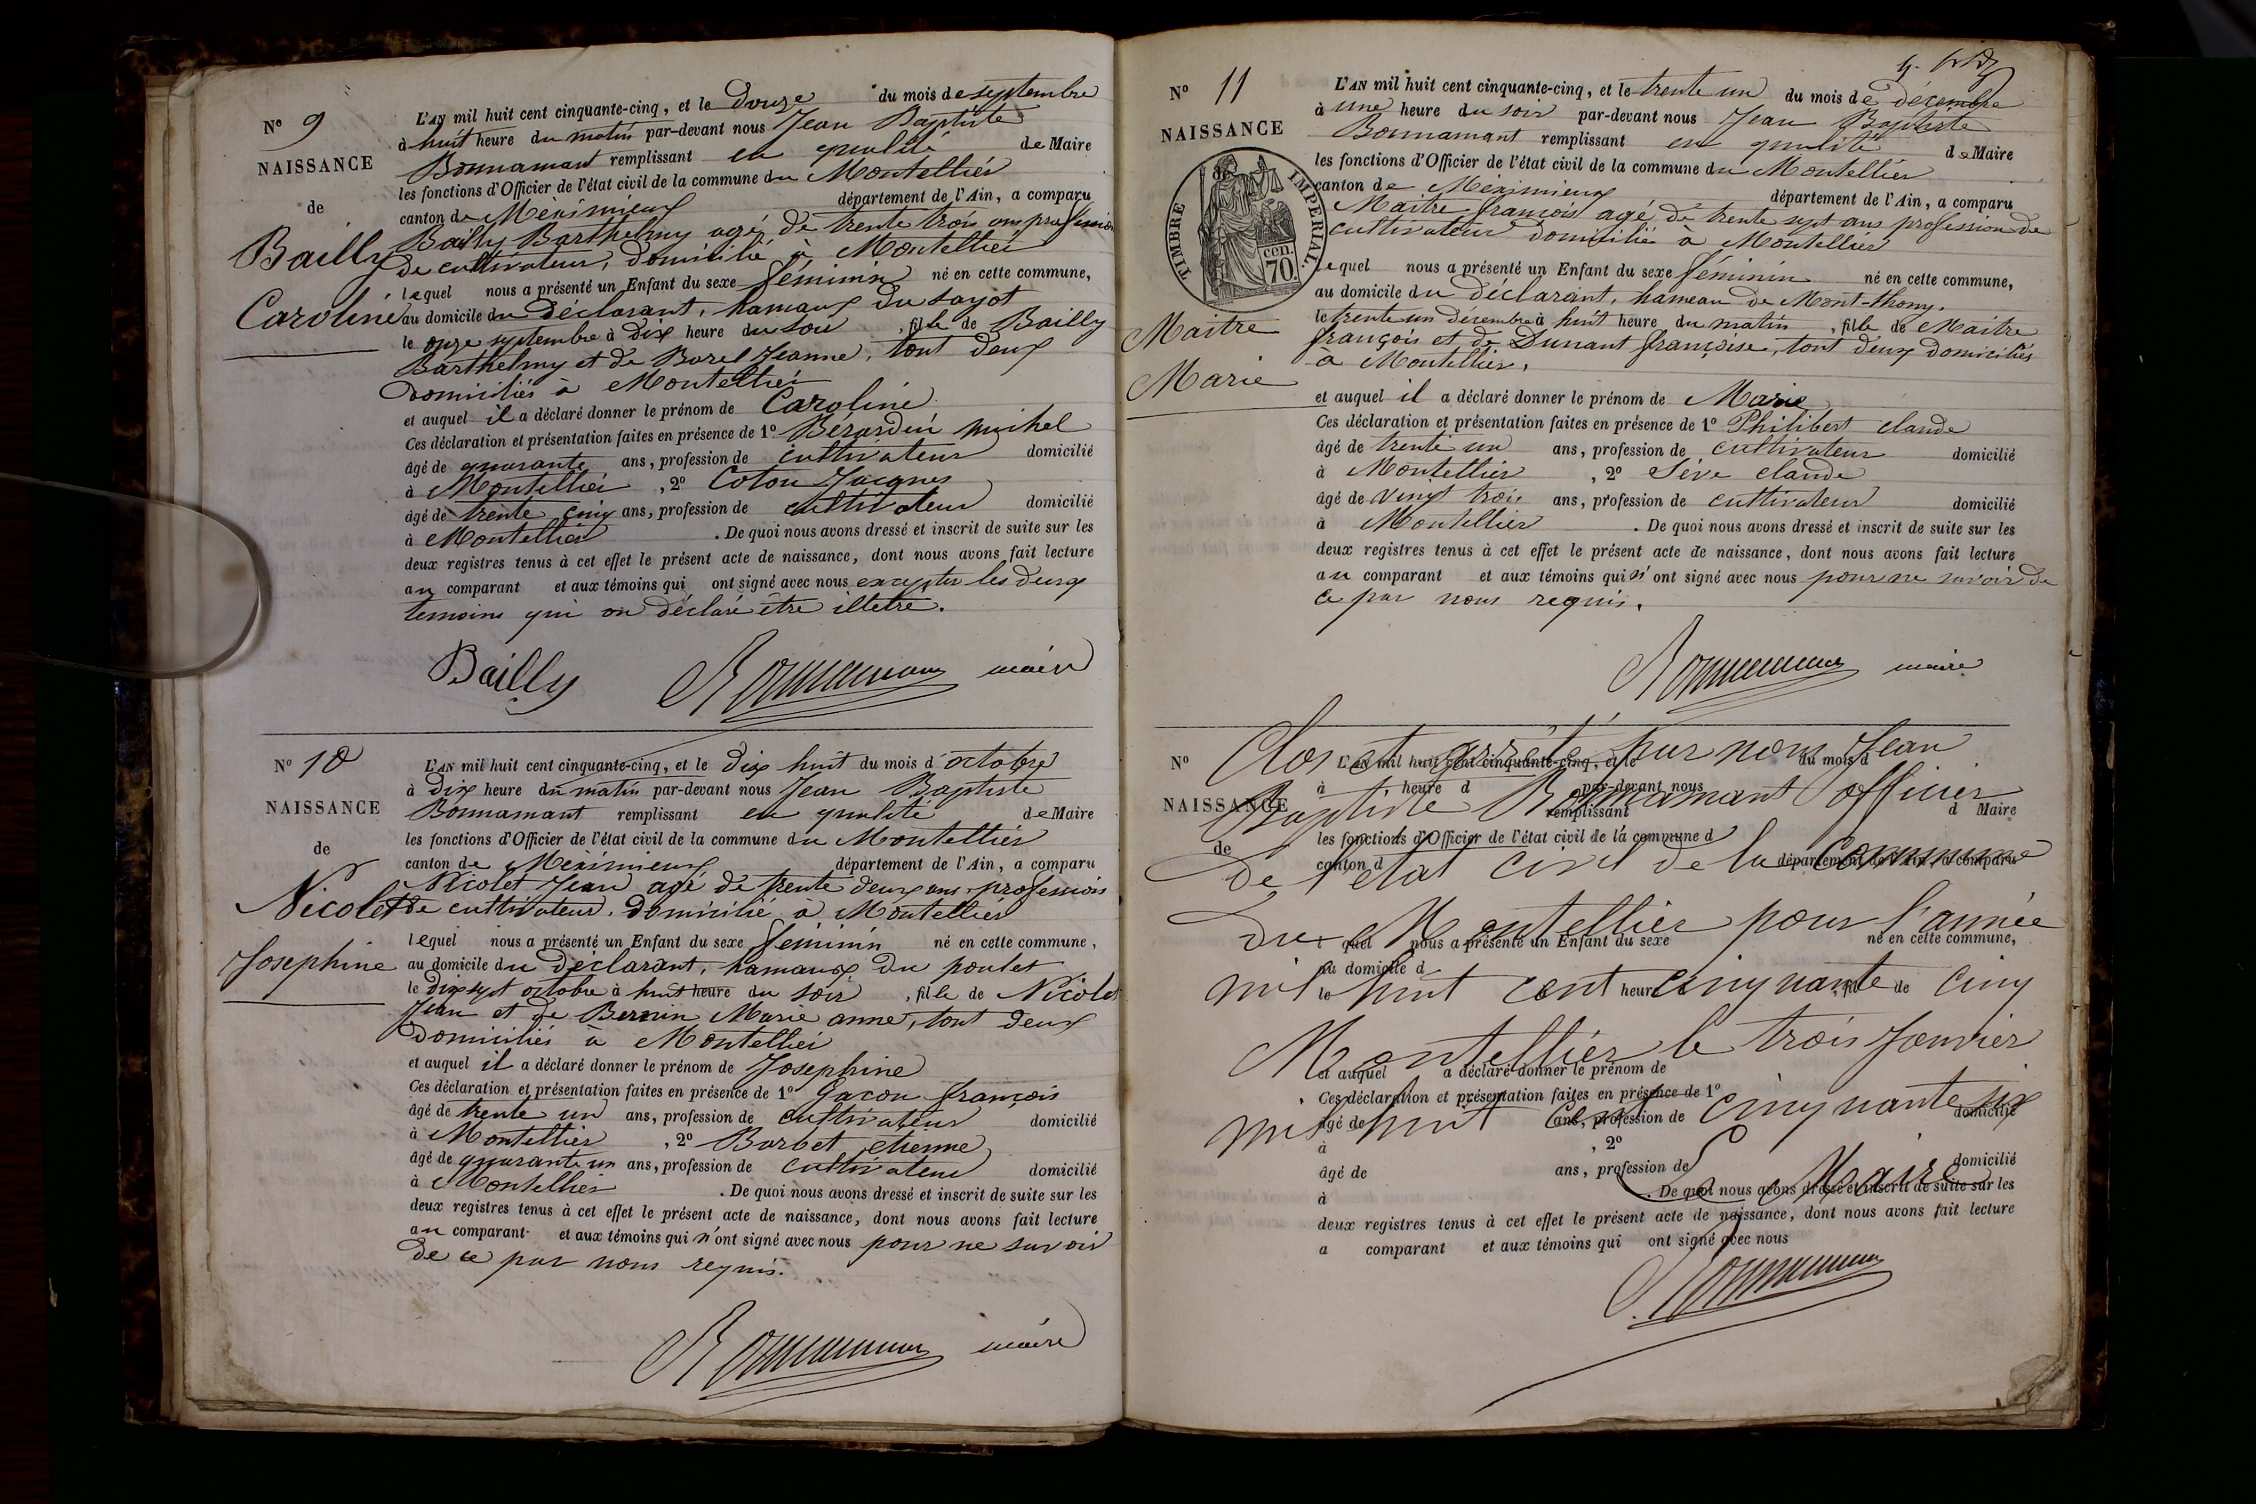 N° 9
NAISSANCE
de
Bailly
Caroline
L'AN mil huit cent cinquante-cinq, et le douze du mois de septembre
à huit heure du matin par-devant nous Jean Baptiste
Bonnamant remplissant en qualité de Maire
les fonctions d'Officier de l'état civil de la commune du Montellier
canton de Méximieux département de l'Ain, a comparu
Bailly Barthelmy agé de trente trois ans profession
de cultivateur, domicilié à Montellier
lequel nous a présenté un Enfant du sexe féminin né en cette commune,
au domicile du déclarant, hamaux du sayot
le onze septembre à dix heure du soir, fille de Bailly
Barthelmy et de Borel Jeanne, tout deux
domiciliés à Montellier
et auquel il a déclaré donner le prénom de Caroline
Ces déclaration et présentation faites en présence de 1° Berardin michel
âgé de quarante ans, profession de cultivateur domicilié
à Montellier, 2° Coton Jacques
âgé de trente cinq ans, profession de cultivateur domicilié
à Montellier. De quoi nous avons dressé et inscrit de suite sur les
deux registres tenus à cet effet le présent acte de naissance, dont nous avons fait lecture
au comparant et aux témoins qui ont signé avec nous excepter les deux
temoins qui on déclaré être illetré.
Bailly Bonnamant maire
N° 10
NAISSANCE
de
Nicolet
Josephine
L'AN mil huit cent cinquante-cinq, et le dix huit du mois d'octobre
à dix heure du matin par-devant nous Jean Baptiste
Bonnamant remplissant en qualité de Maire
les fonctions d'Officier de l'état civil de la commune du Montellier
canton de Meximieux département de l'Ain, a comparu
Nicolet Jean agé de trente deux ans, profession
de cultivateur, domicilié à Montellier
lequel nous a présenté un Enfant du sexe féminin né en cette commune,
au domicile du déclarant, hamaux du poulet
le dix sept octobre à huit heure du soir, fille de Nicolet
Jean et de Bernin Marie anne, tout deux
domiciliés à Montellier
et auquel il a déclaré donner le prénom de Josephine
Ces déclaration et présentation faites en présence de 1° Gacon françois
âgé de trente un ans, profession de cultivateur domicilié
à Montellier, 2° Barbet etienne
âgé de quarante un ans, profession de cultivateur domicilié
à Montellier. De quoi nous avons dressé et inscrit de suite sur les
deux registres tenus à cet effet le présent acte de naissance, dont nous avons fait lecture
au comparant et aux témoins qui n'ont signé avec nous pour ne savoir
de ce par nous requis.
Bonnamant maire
N° 11
NAISSANCE
TIMBRE IMPERIAL
70 cen.
Maitre
Marie
L'AN mil huit cent cinquante-cinq, et le trente un du mois de décembre
à une heure du soir par-devant nous Jean Baptiste
Bonnamant remplissant en qualité de Maire
les fonctions d'Officier de l'état civil de la commune du Montellier
canton de Méximieux département de l'Ain, a comparu
Maitre françois agé de trente sept ans profession de
cultivateur domicilié à Montellier
lequel nous a présenté un Enfant du sexe féminin né en cette commune,
au domicile du déclarant, hameau de Mont-thomy,
le trente un décembre à huit heure du matin, fille de Maitre
françois et de Dunant françoise, tout deux domiciliés
a Montellier,
et auquel il a déclaré donner le prénom de Marie
Ces déclaration et présentation faites en présence de 1° Philibert claude
âgé de trente un ans, profession de cultivateur domicilié
à Montellier, 2° Sève claude
âgé de vingt trois ans, profession de cultivateur domicilié
à Montellier. De quoi nous avons dressé et inscrit de suite sur les
deux registres tenus à cet effet le présent acte de naissance, dont nous avons fait lecture
au comparant et aux témoins qui n'ont signé avec nous pour ne savoir de
ce par nous requis.
Bonnamant maire
N°
NAISSANCE
de
L'AN mil huit cent cinquante-cinq, et le du mois d
à heure d par-devant nous
remplissant d Maire
les fonctions d'Officier de l'état civil de la commune d
canton d département de l'Ain, a comparu
quel nous a présenté un Enfant du sexe né en cette commune,
au domicile d
le heure , fil de
et auquel a déclaré donner le prénom de
Ces déclaration et présentation faites en présence de 1°
âgé de ans, profession de domicilié
à , 2°
âgé de ans, profession de domicilié
à . De quoi nous avons dressé et inscrit de suite sur les
deux registres tenus à cet effet le présent acte de naissance, dont nous avons fait lecture
a comparant et aux témoins qui ont signé avec nous
Clos et arrêté par nous Jean
Baptiste Bonnamant officier
de l'état civil de la commune
du Montellier pour l'année
mil huit cent cinquante cinq
Montellier le trois Janvier
mil huit cent cinquante six
Le Maire
Bonnamant